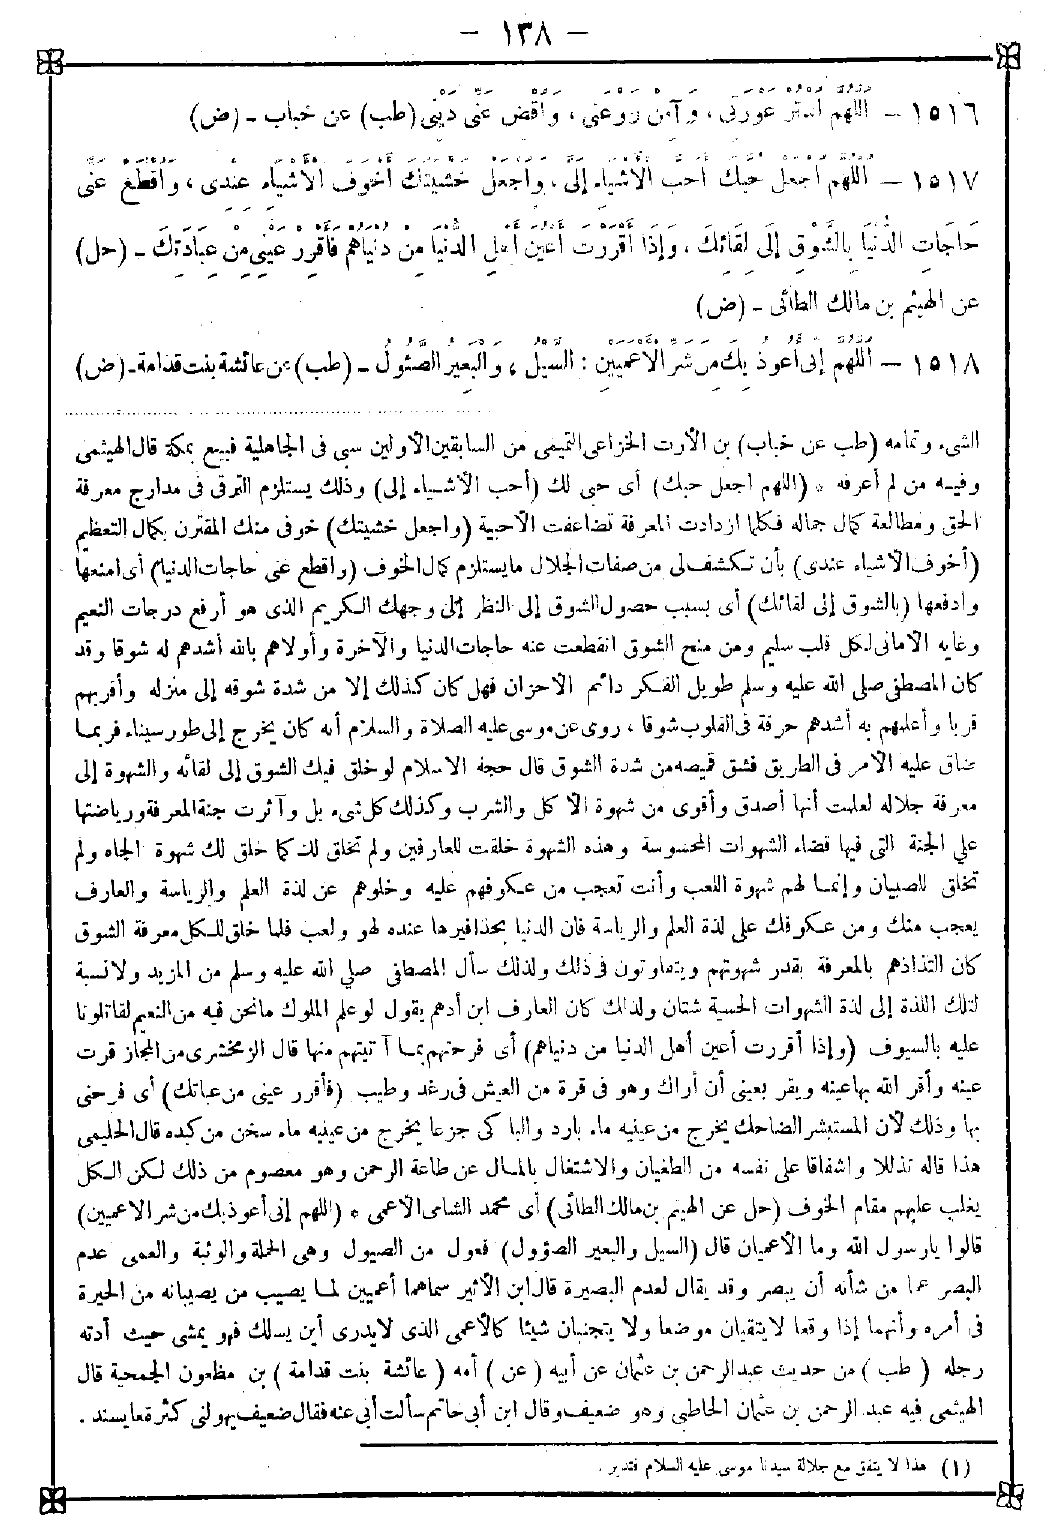 - ١٣٨ -
١٥١٦ - اللَّهُمَّ اسْتُرْ عَوْرَتِي ، وَآمِنْ رَوْعَتِي ، وَاقْضِ عَنِّي دَيْنِي (طب) عن خباب - (ض)
١٥١٧ - اللَّهُمَّ اجْعَلْ حُبَّكَ أَحَبَّ الْأَشْيَاءِ إِلَيَّ ، وَاجْعَلْ خَشْيَتَكَ أَخْوَفَ الْأَشْيَاءِ عِنْدِي ، وَاقْطَعْ عَنِّي
حَاجَاتِ الدُّنْيَا بِالشَّوْقِ إِلَى لِقَائِكَ ، وَإِذَا أَقْرَرْتَ أَعْيُنَ أَهْلِ الدُّنْيَا مِنْ دُنْيَاهُمْ فَأَقْرِرْ عَيْنِي مِنْ عِبَادَتِكَ - (حل)
عن الهيثم بن مالك الطائى - (ض)
١٥١٨ - اللَّهُمَّ إِنِّي أَعُوذُ بِكَ مِنْ شَرِّ الْأَعْمَيَيْنِ : السَّيْلِ ، وَالْبَعِيرِ الصَّئُولِ - (طب) عن عائشة بنت قدامة - (ض)
الشىء وتمامه (طب عن خباب) بن الأرت الخزاعى التميمى من السابقين الأولين سبى فى الجاهلية فبيع بمكة قال الهيثمى
وفيه من لم أعرفه * (اللهم اجعل حبك) أى حبى لك (أحب الأشياء إلى) وذلك يستلزم الترقى فى مدارج معرفة
الحق ومطالعة كمال جماله فكلما ازدادت المعرفة تضاعفت الأحبية (واجعل خشيتك) خوفى منك المقترن بكمال التعظيم
(أخوف الأشياء عندى) بأن تكشف لى من صفات الجلال ما يستلزم كمال الخوف (واقطع عنى حاجات الدنيا) أى امنعها
وادفعها (بالشوق إلى لقائك) أى بسبب حصول الشوق إلى النظر إلى وجهك الكريم الذى هو أرفع درجات النعيم
وغاية الأمانى لكل قلب سليم ومن منح الشوق انقطعت عنه حاجات الدنيا والآخرة وأولاهم بالله أشدهم له شوقا وقد
كان المصطفى صلى الله عليه وسلم طويل الفكر دائم الأحزان فهل كان كذلك إلا من شدة شوقه إلى منزله وأقربهم
قربا وأعلمهم به أشدهم حرقة فى القلوب شوقا ، روى عن موسى عليه الصلاة والسلام أنه كان يخرج إلى طور سيناء فربما
ضاق عليه الأمر فى الطريق فشق قميصه من شدة الشوق قال حجة الاسلام لو خلق فيك الشوق إلى لقائه والشهوة إلى
معرفة جلاله لعلمت أنها أصدق وأقوى من شهوة الأكل والشرب وكذلك كل شىء بل وآثرت جنة المعرفة ورياضتها
على الجنة التى فيها قضاء الشهوات المحسوسة وهذه الشهوة خلقت للعارفين ولم تخلق لك كما خلق لك شهوة الجاه ولم
تخلق للصبيان وإنما لهم شهوة اللعب وأنت تعجب من عكوفهم عليه وخلوهم عن لذة العلم والرياسة والعارف
يعجب منك ومن عكوفك على لذة العلم والرياسة فان الدنيا بحذافيرها عنده لهو ولعب فلما خلق للكل معرفة الشوق
كان التذاذهم بالمعرفة بقدر شهوتهم ويتفاوتون فى ذلك ولذلك سأل المصطفى صلى الله عليه وسلم من المزيد ولا نسبة
لتلك اللذة إلى لذة الشهوات الحسية شتان ولذلك كان العارف ابن أدهم يقول لو علم الملوك ما نحن فيه من النعيم لقاتلونا
عليه بالسيوف (وإذا أقررت أعين أهل الدنيا من دنياهم) أى فرحتهم بما آتيتهم منها قال الزمخشرى من المجاز قرت
عينه وأقر الله بها عينه ويقر بعينى أن أراك وهو فى قرة من العيش فى رغد وطيب (فأقرر عينى من عبادتك) أى فرحنى
بها وذلك لأن المستبشر الضاحك يخرج من عينيه ماء بارد والباكى جزعا يخرج من عينيه ماء سخن من كبده قال الحليمى
هذا قاله تذللا وإشفاقا على نفسه من الطغيان والاشتغال بالمال عن طاعة الرحمن وهو معصوم من ذلك لكن الكل
يغلب عليهم مقام الخوف (حل عن الهيثم بن مالك الطائى) أى محمد الشامى الأعمى * (اللهم إنى أعوذ بك من شر الأعميين)
قالوا يا رسول الله وما الأعميان قال (السيل والبعير الصؤول) فعول من الصيول وهى الحملة والوثبة والعمى عدم
البصر عما من شأنه أن يبصر وقد يقال لعدم البصيرة قال ابن الأثير سماهما أعميين لما يصيب من يصيبانه من الحيرة
فى أمره وأنهما إذا وقعا لا يتقيان موضعا ولا يتجنبان شيئا كالأعمى الذى لا يدرى أين يسلك فهو يمشى حيث أدته
رجله (طب) من حديث عبد الرحمن بن عثمان عن أبيه (عن) أمه (عائشة بنت قدامة) بن مظعون الجمحية قال
الهيثمى فيه عبد الرحمن بن عثمان الحاطبى وهو ضعيف وقال ابن أبى حاتم سألت أبى عنه فقال ضعيف يهولنى كثرة ما يسند .
(١) هذا لا يتفق مع جلالة سيدنا موسى عليه السلام فتدبر .